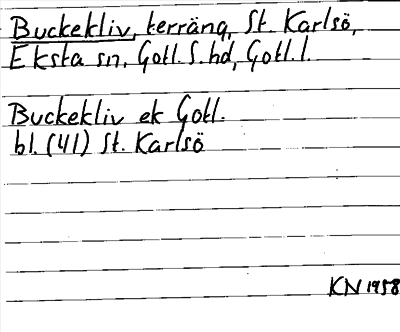 Buckekliv, terräng, St. Karlsö,
Eksta sn, Gotl. S. hd, Gotl. l.
Buckekliv ek Gotl.
bl. (41) St. Karlsö
KN 1958